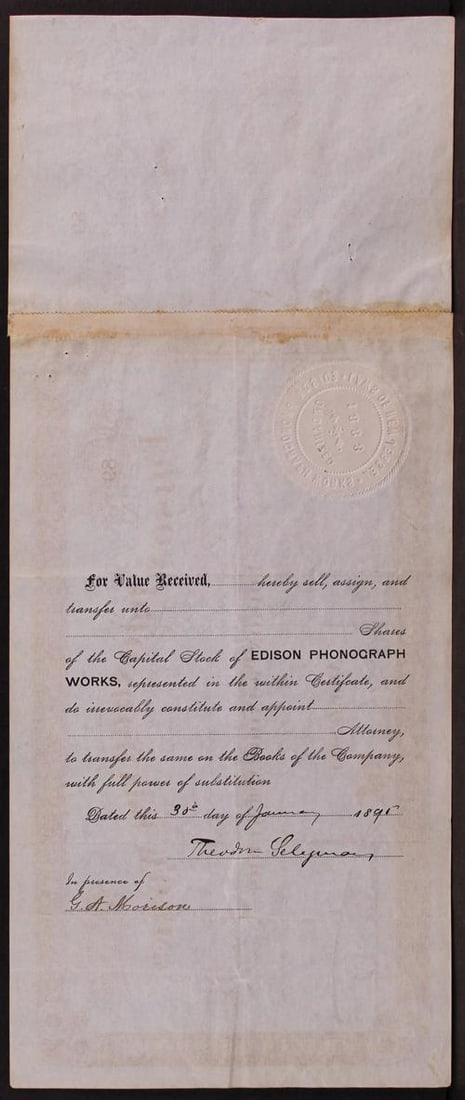 For Value Received, hereby sell, assign, and
transfer unto
Shares
of the Capital Stock of EDISON PHONOGRAPH
WORKS, represented in the within Certifcate, and
do irrevocably constitute and appoint
Attorney,
to transfer the same on the Books of the Company,
with full power of substitution
Dated this 30th day of January 1895
Theodore Seligman
In presence of
G. N. Morison